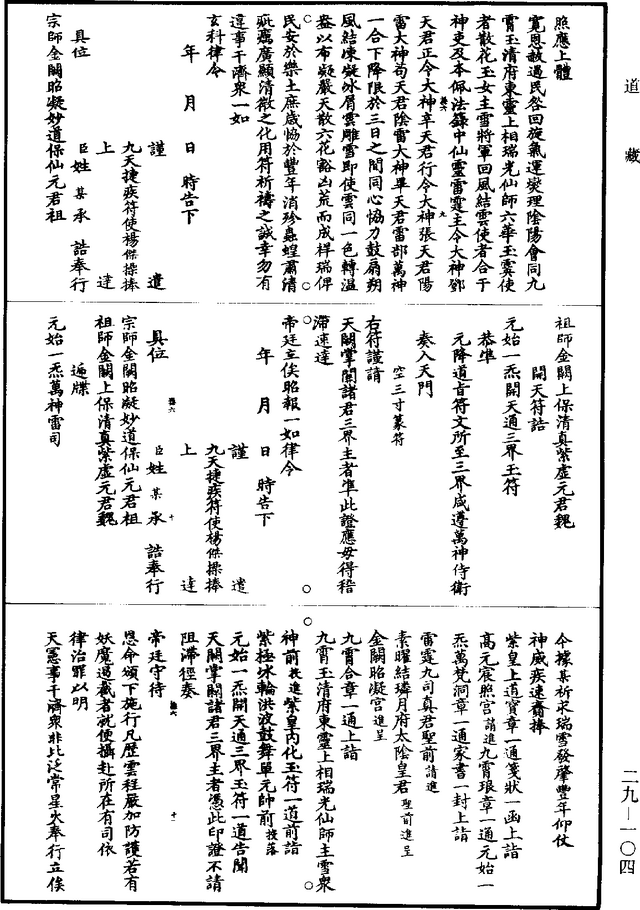 道藏
照應上體
寬恩赦過民咎回旋氣運爕理陰陽會同九
霄玉清府東靈上相瑞光仙師六華玉霙使
者散花玉女主雪將軍回風結雲使者合于
神吏及本佩法籙中仙靈雷霆主令大神鄧
天君正令大神辛天君行令大神張天君陽
雷大神苟天君陰雷大神畢天君雷部萬神
一合下降限於三日之間同心恊力鼓扇朔
風結凍凝冰屑雲雕雪即使雲同一色轉溫
盎以布凝嚴天散六花豁凶荒而成梓瑞俾
民安於樂土庶歲恊於豐年消殄蟲蝗肅清
疵癘廣顯清微之化用符祈禱之誠幸勿有
違事干濟衆一如
玄科律令
年 月 日 時告下
謹 遣
九天捷疾符使楊傑操捧
上 達
具位 臣姓 某 承 誥奉行
宗師金闕昭凝妙道保仙元君祖
祖師金闕上保清真紫虛元君魏
開天符誥
元始一炁開天通三界玉符
恭準
元降道旨符文所至三界咸遵萬神侍衛
奏入天門
空三寸篆符
右符謹請
天闕掌闔諸君三界主者準此證應毋得稽
滯速達
帝廷立俟昭報一如律令
年 月 日 時告下
謹 遣
九天捷疾符使楊傑操捧
上 達
具位 臣姓 某 承 誥奉行
宗師金闕昭凝妙道保仙元君祖
祖師金闕上保清真紫虛元君魏
遍牒
元始一炁萬神雷司
今據某祈求瑞雪發肇豐年仰仗
神威疾速賫捧
紫皇上道寳章一通箋狀一函上詣
高元宸照宫請進九霄琅章一通元始一
炁萬梵洞章一通家書一封上詣
雷霆九司真君聖前請進
素曜結璘月府太陰皇君聖前進呈
金闕昭凝宫進呈
九霄合章一通上詣
九霄玉清府東靈上相瑞光仙師主雪衆
神前投進紫皇丙化玉符一道前詣
紫極冰輪洪波鼓舞單元帥前投落
元始一炁開天通三界玉符一道告聞
天闕掌闔諸君三界主者憑此印證不請
阻滯徑奏
帝廷守待
恩命頒下施行凡歷雲程嚴加防護若有
妖魔遏截者就便攝赴所在有司依
律治罪以明
天憲事干濟衆非比泛常星火奉行立俟
二九—一〇四